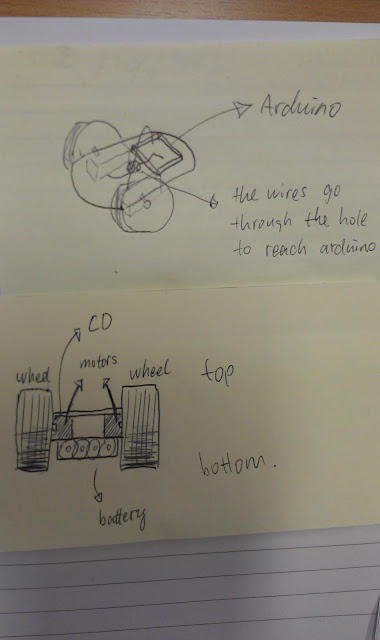 Arduino
the wires go
through the hole
to reach arduino
CD
motors
wheel
wheel
top
bottom.
battery